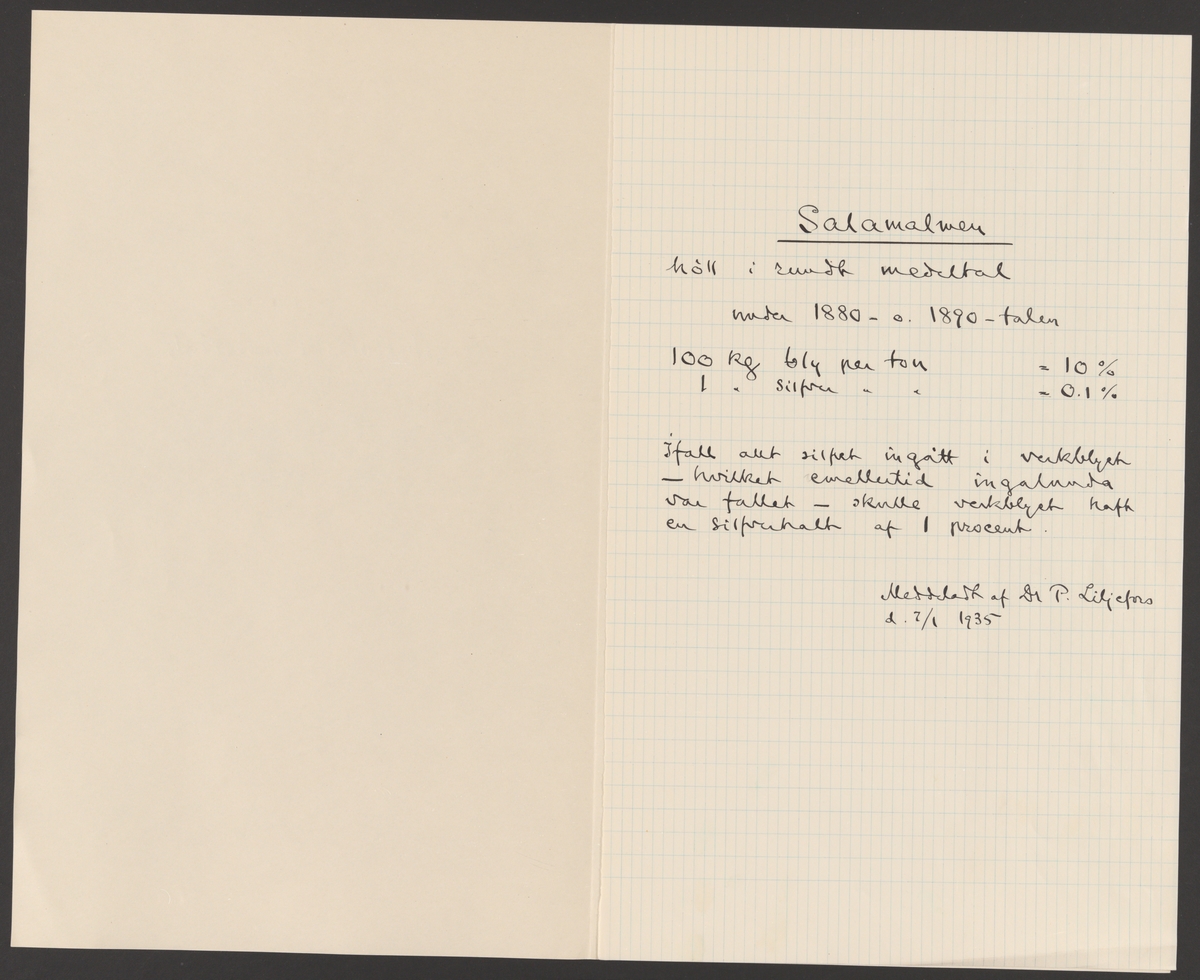 Salamalmen
höll i rundt medeltal
under 1880- o. 1890-talen
100 kg bly per ton = 10 %
1 " silfver " " = 0.1 %
Ifall allt silfret ingått i verkblyet
— hvilket emellertid ingalunda
var fallet — skulle verkblyet haft
en silfverhalt af 1 procent.
Meddeladt af Dr P. Liljefors
d. 2/1 1935